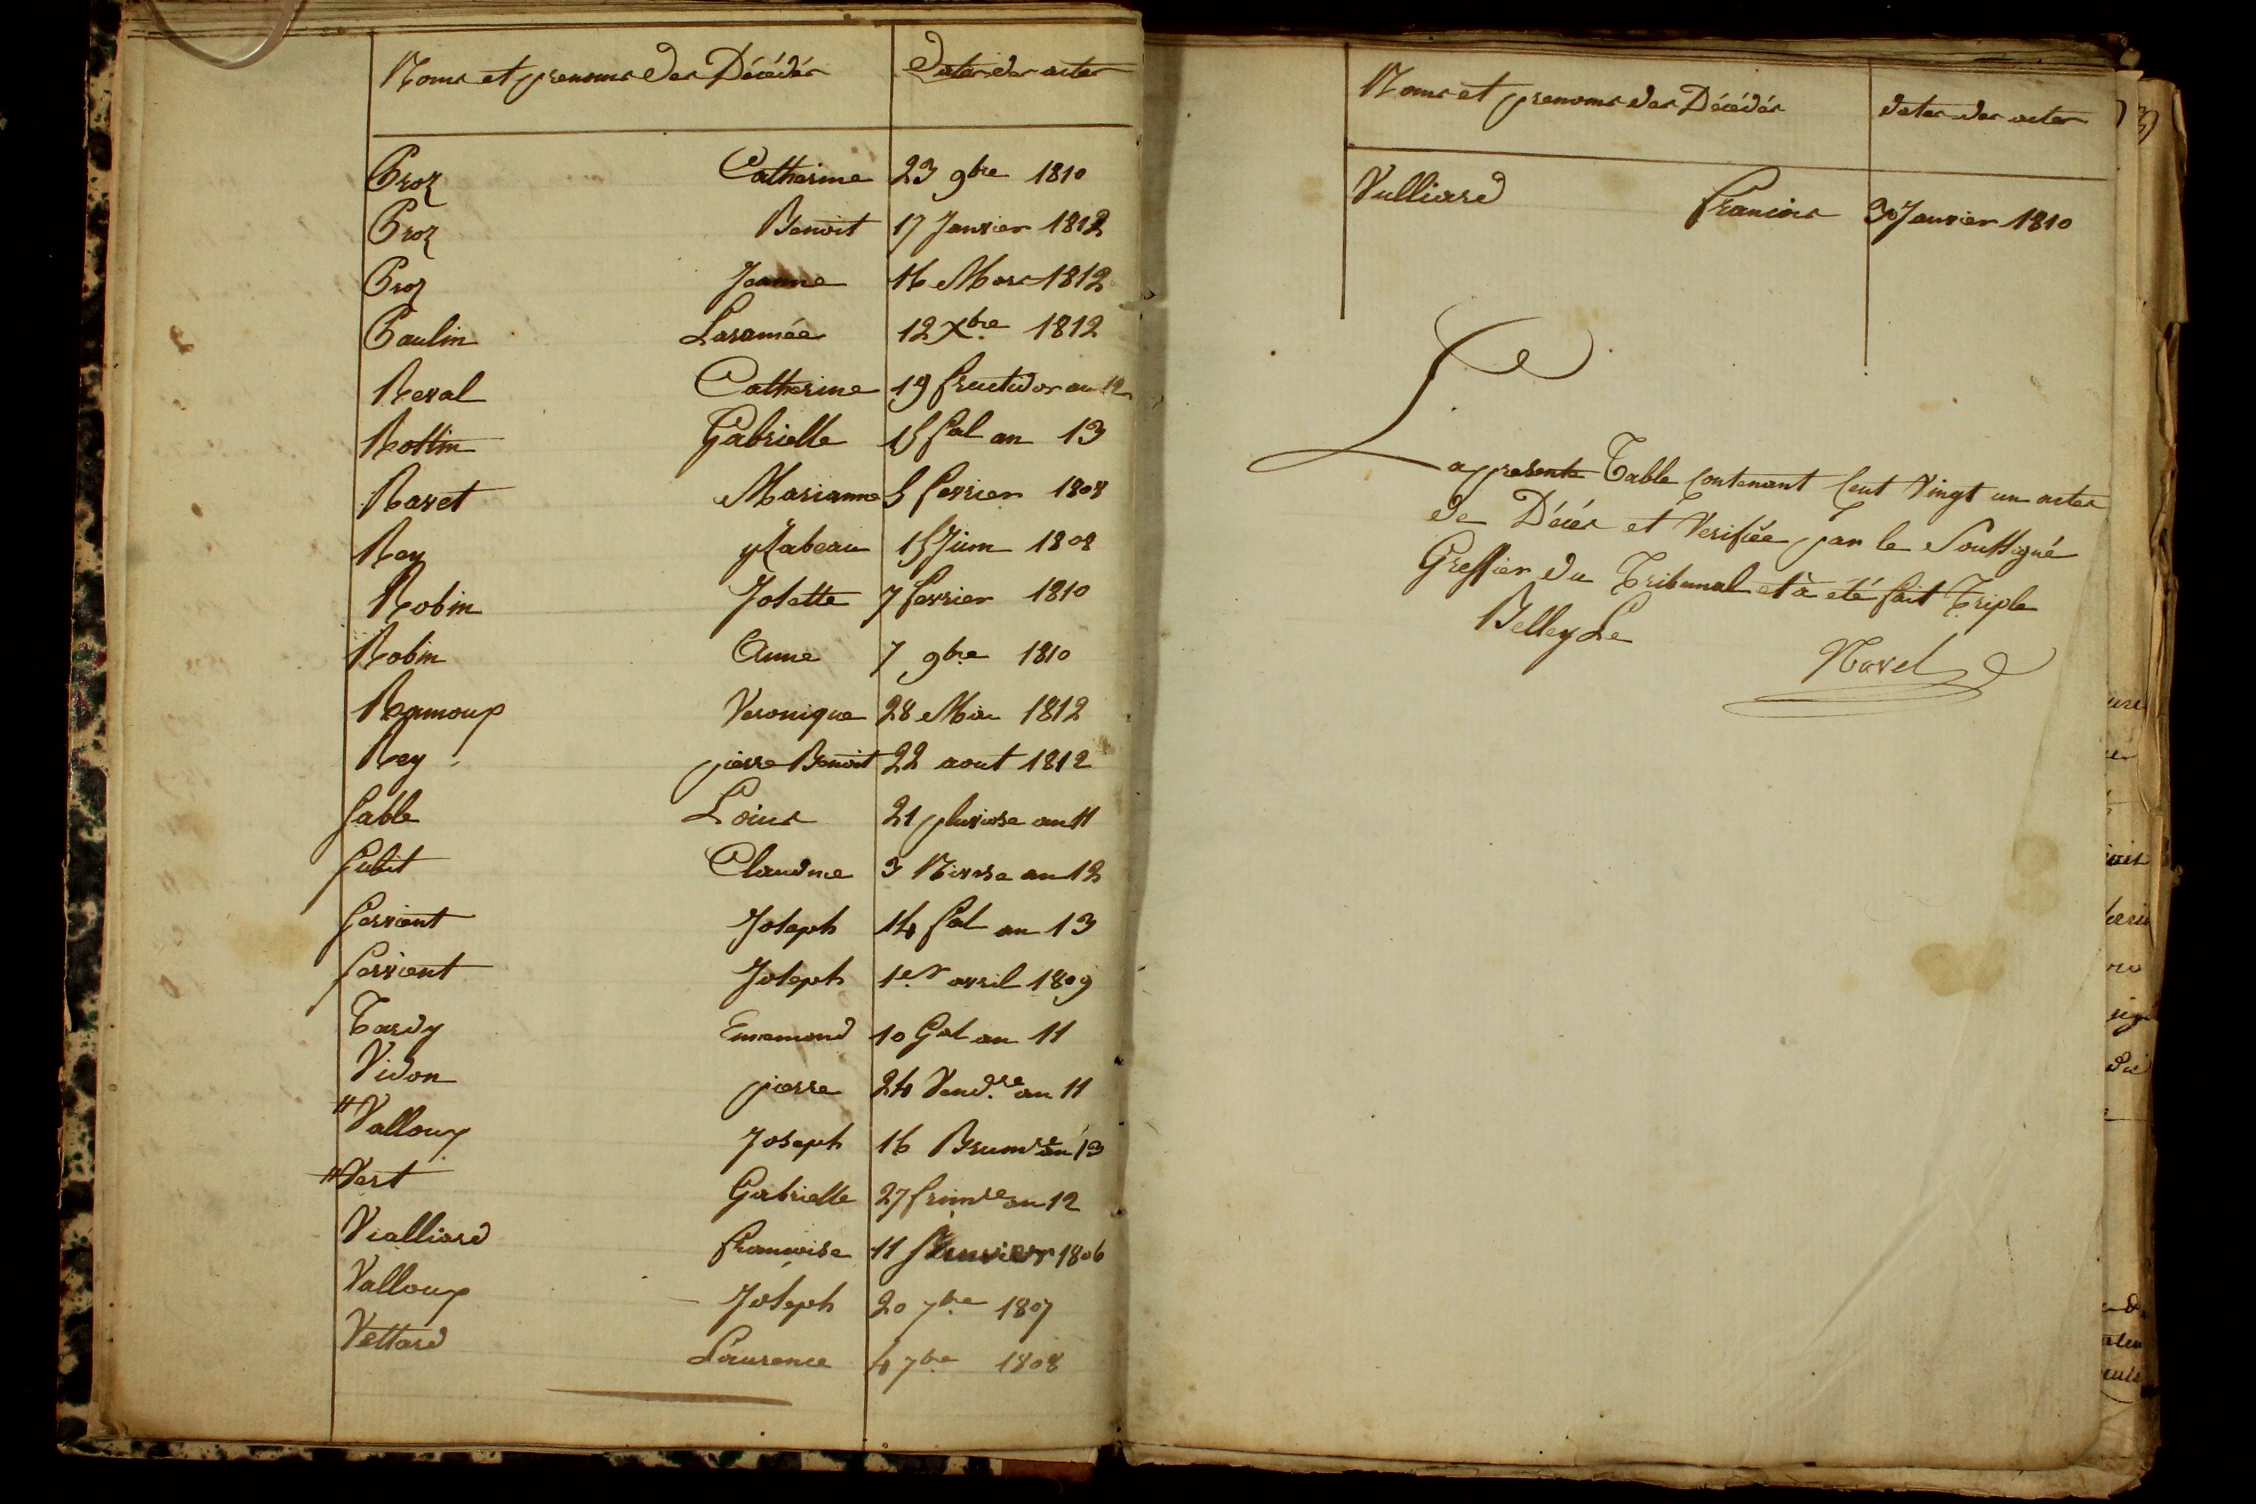 Noms et prenoms des Décédés Dates des actes
Proz Catherine 23 9bre 1810
Proz Benoit 17 Janvier 1812
Proz Jeanne 16 Mars 1812
Paulin Laramée 12 Xbre 1812
Reval Catherine 19 fructidor an 12
Rottin Gabrielle 15 fal an 13
Ravet Marianne 5 fevrier 1808
Rey ysabeau 15 Juin 1808
Robin Josette 7 fevrier 1810
Robin Anne 7 9bre 1810
Ramoux Veronique 28 Mai 1812
Rey pierre Benoit 22 aout 1812
Sable Loius 21 pluviose an 11
Subit Claudine 3 Nivose an 12
Servient Joseph 14 fal an 13
Servient Joseph 1er avril 1809
Tardy Ennemond 10 Gal an 11
Vidon pierre 24 Vendre an 11
" Valloux Joseph 16 Brumre an 13
" Vert Gabrielle 27 frimre an 12
Vialliard francoise 11 Janvier 1806
Valloux Joseph 20 7bre 1807
Vettard Laurence 4 7bre 1808
Noms et prenoms des Décédés dates des actes
Vulliard francois Janvier 1810
La presente Table contenant Cent Vingt un actes
de Décés et Verifiée par le Soussigné
Greffier du Tribunal et a été fait Triple
Belley Le